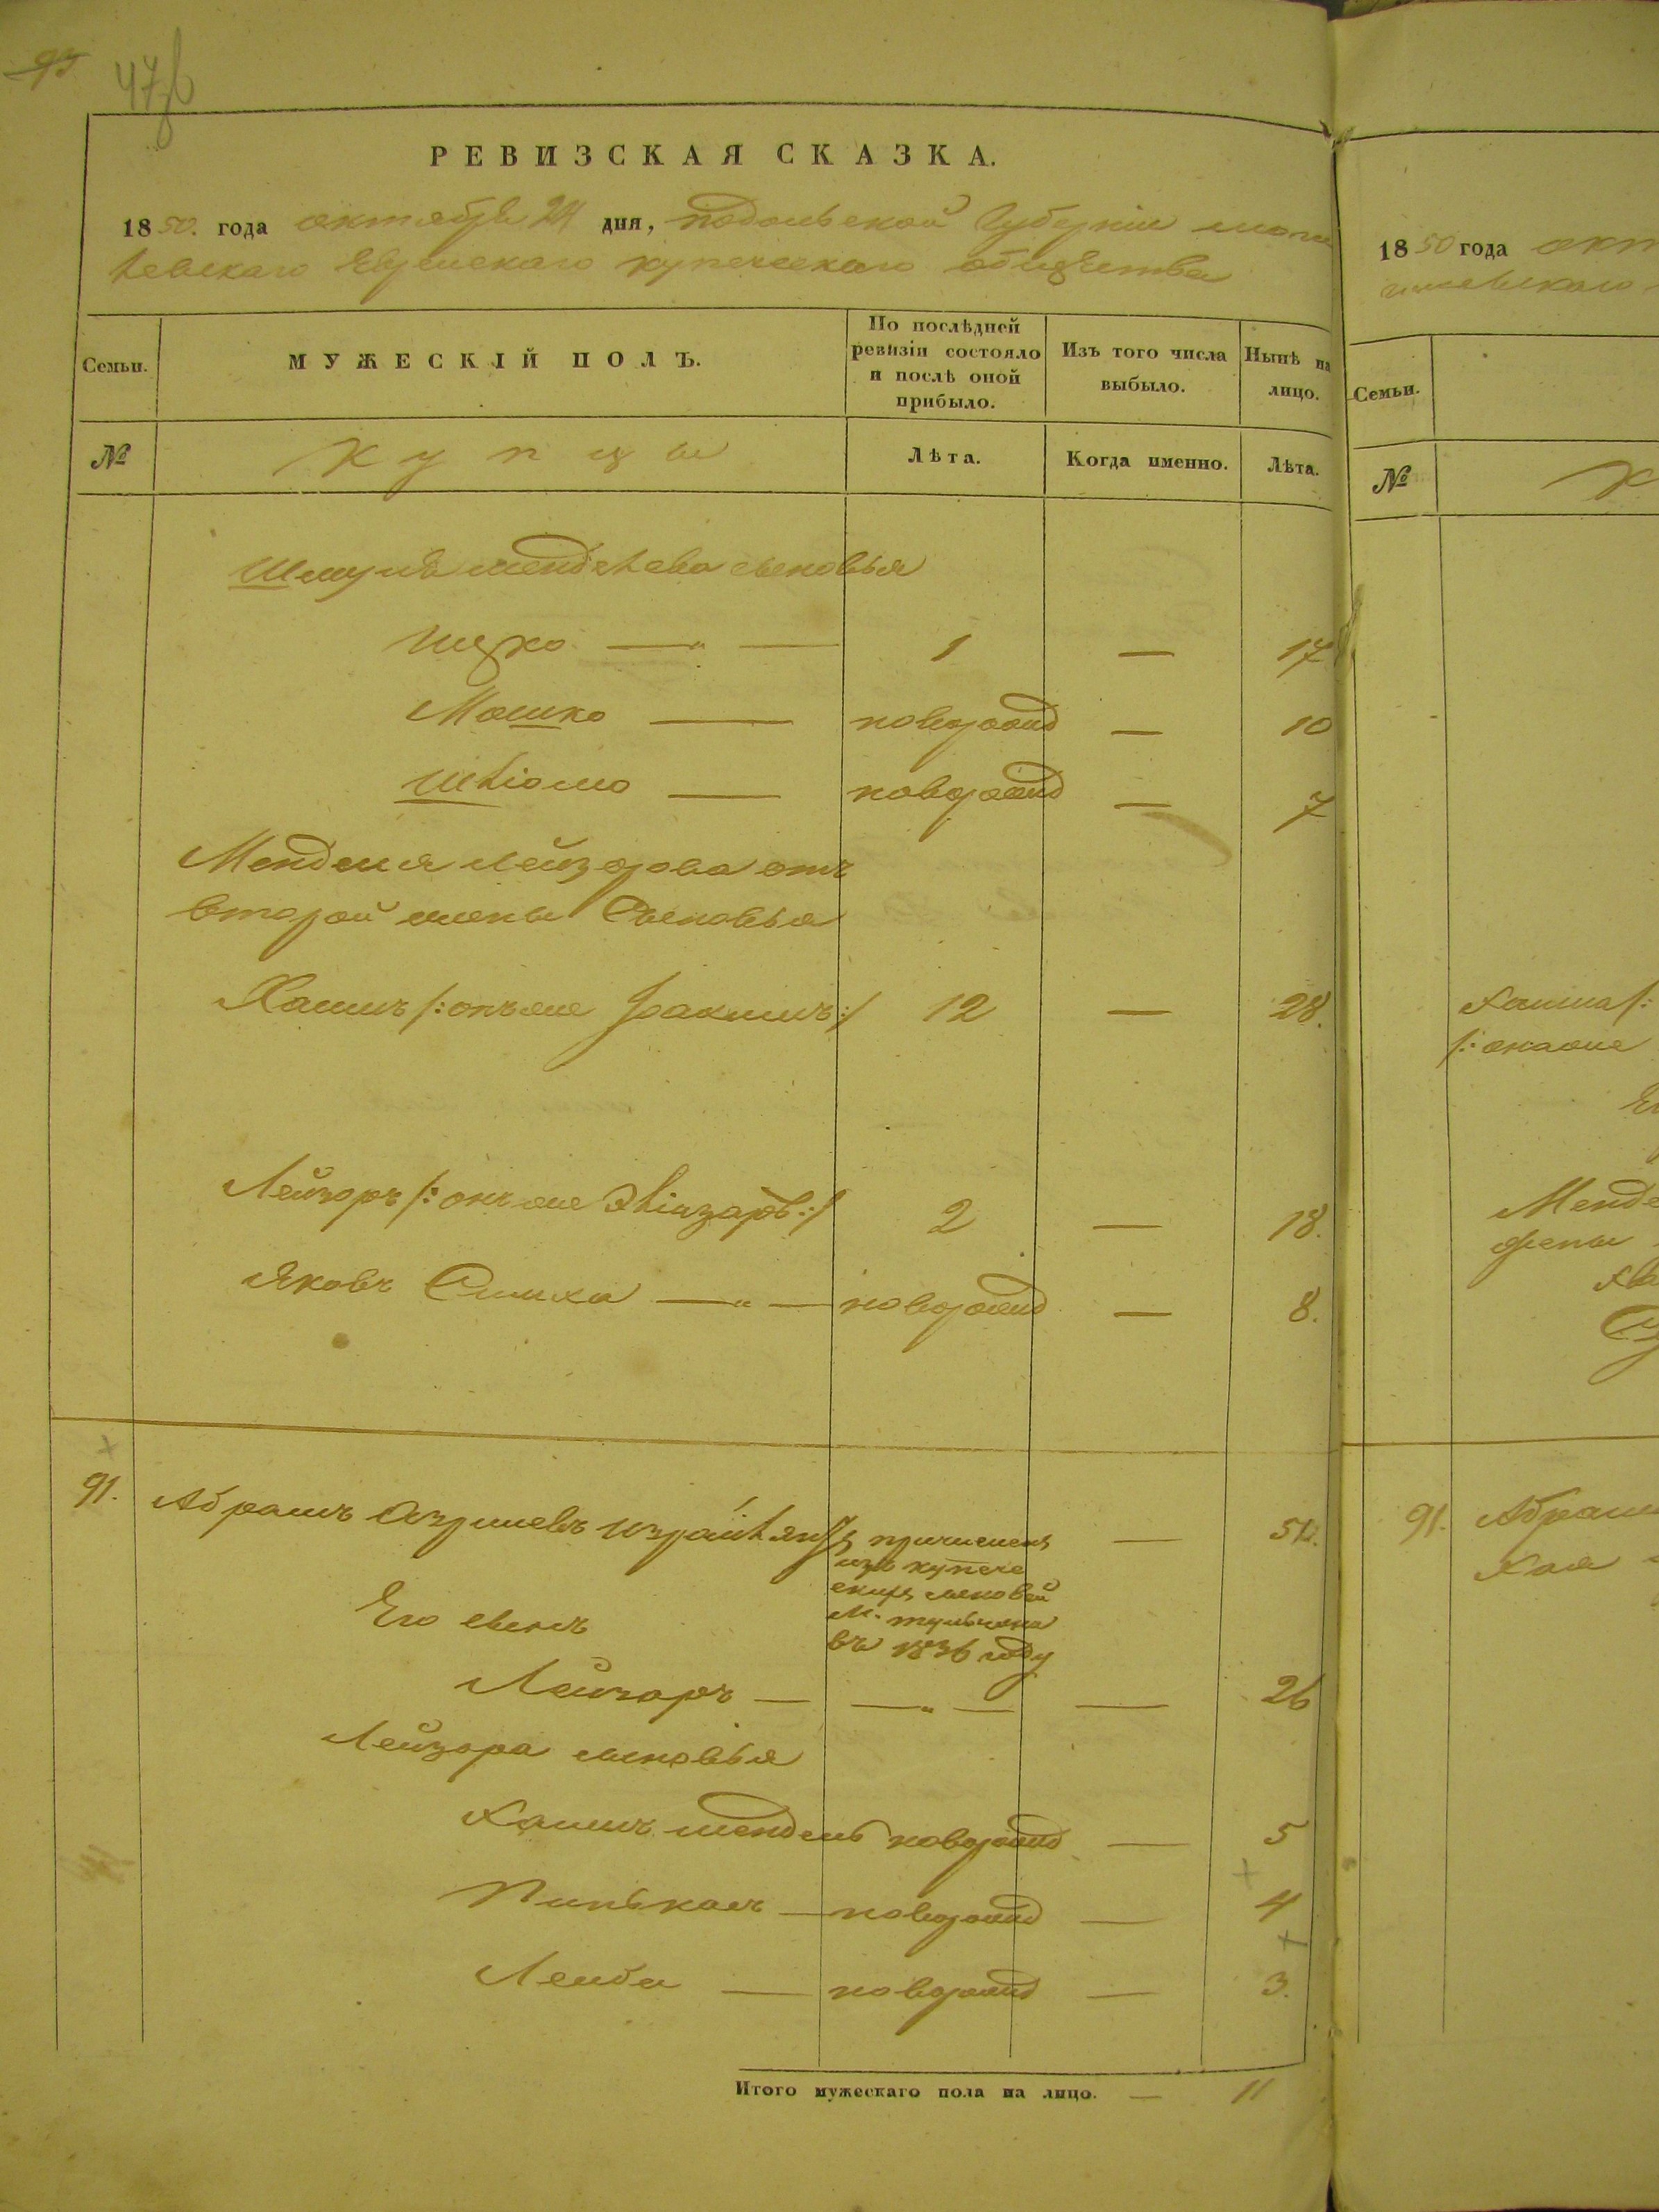 95
47об
РЕВИЗСКАЯ СКАЗКА.
1850. года октября 24 дня, подольской Губернiи моги
левскаго Еврейскаго купеческаго общества
Семьи.
МУЖЕСКIЙ ПОЛЪ.
По послѣдней
ревизiи состояло
и послѣ оной
прибыло.
Изъ того числа
выбыло.
Нынѣ на
лицо.
№
Купцы
Лѣта.
Когда именно.
Лѣта.
Шмуля менделева сыновья
Ицко — " — 1 — 17
Мошко — новорожд — 10
Шлiомо — новорожд — 7
Менделя лейзорова отъ
второй жены Сыновья
Хаимъ /: онъ же Iоахимъ :/ 12 — 28.
Лейзоръ /: онъ же Элiазаръ :/ 2 — 18.
Яковъ Симха — " — новорожд — 8.
91. Абрамъ Азрилевъ израйлянецъ причисленъ — 51.
изъ купече
скихъ сыновей
М. тульчина
въ 1836 году
Его сынъ
Лейзоръ — — " — — 26
Лейзора сыновья
Хаимъ мендель новорожд — 5
Пинькасъ — новорожд — 4
Лейба — новорожд — 3.
Итого мужескаго пола на лицо. — 11
1850 года окт
Семьи.
№
К
/: онаже
Менде
жены
91. Абрам